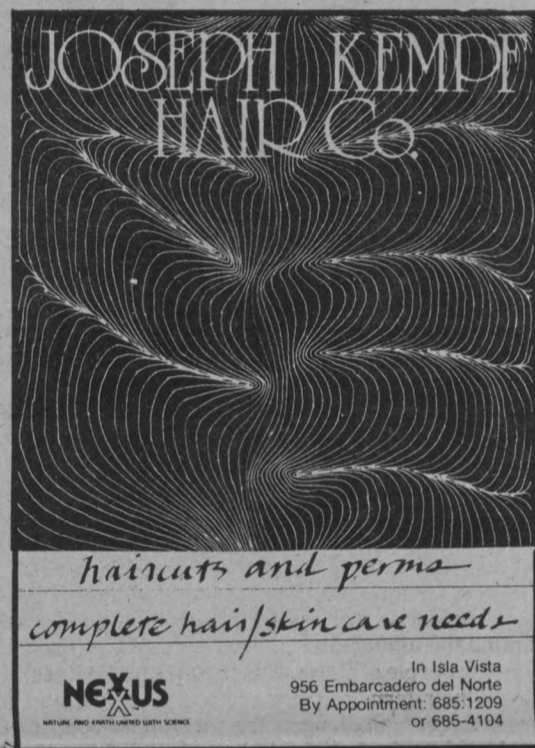 JOSEPH KEMPF
HAIR Co.
haircuts and perms
complete hair/skin care needs
NEXXUS
NATURE AND EARTH UNITED WITH SCIENCE
In Isla Vista
956 Embarcadero del Norte
By Appointment: 685:1209
or 685-4104